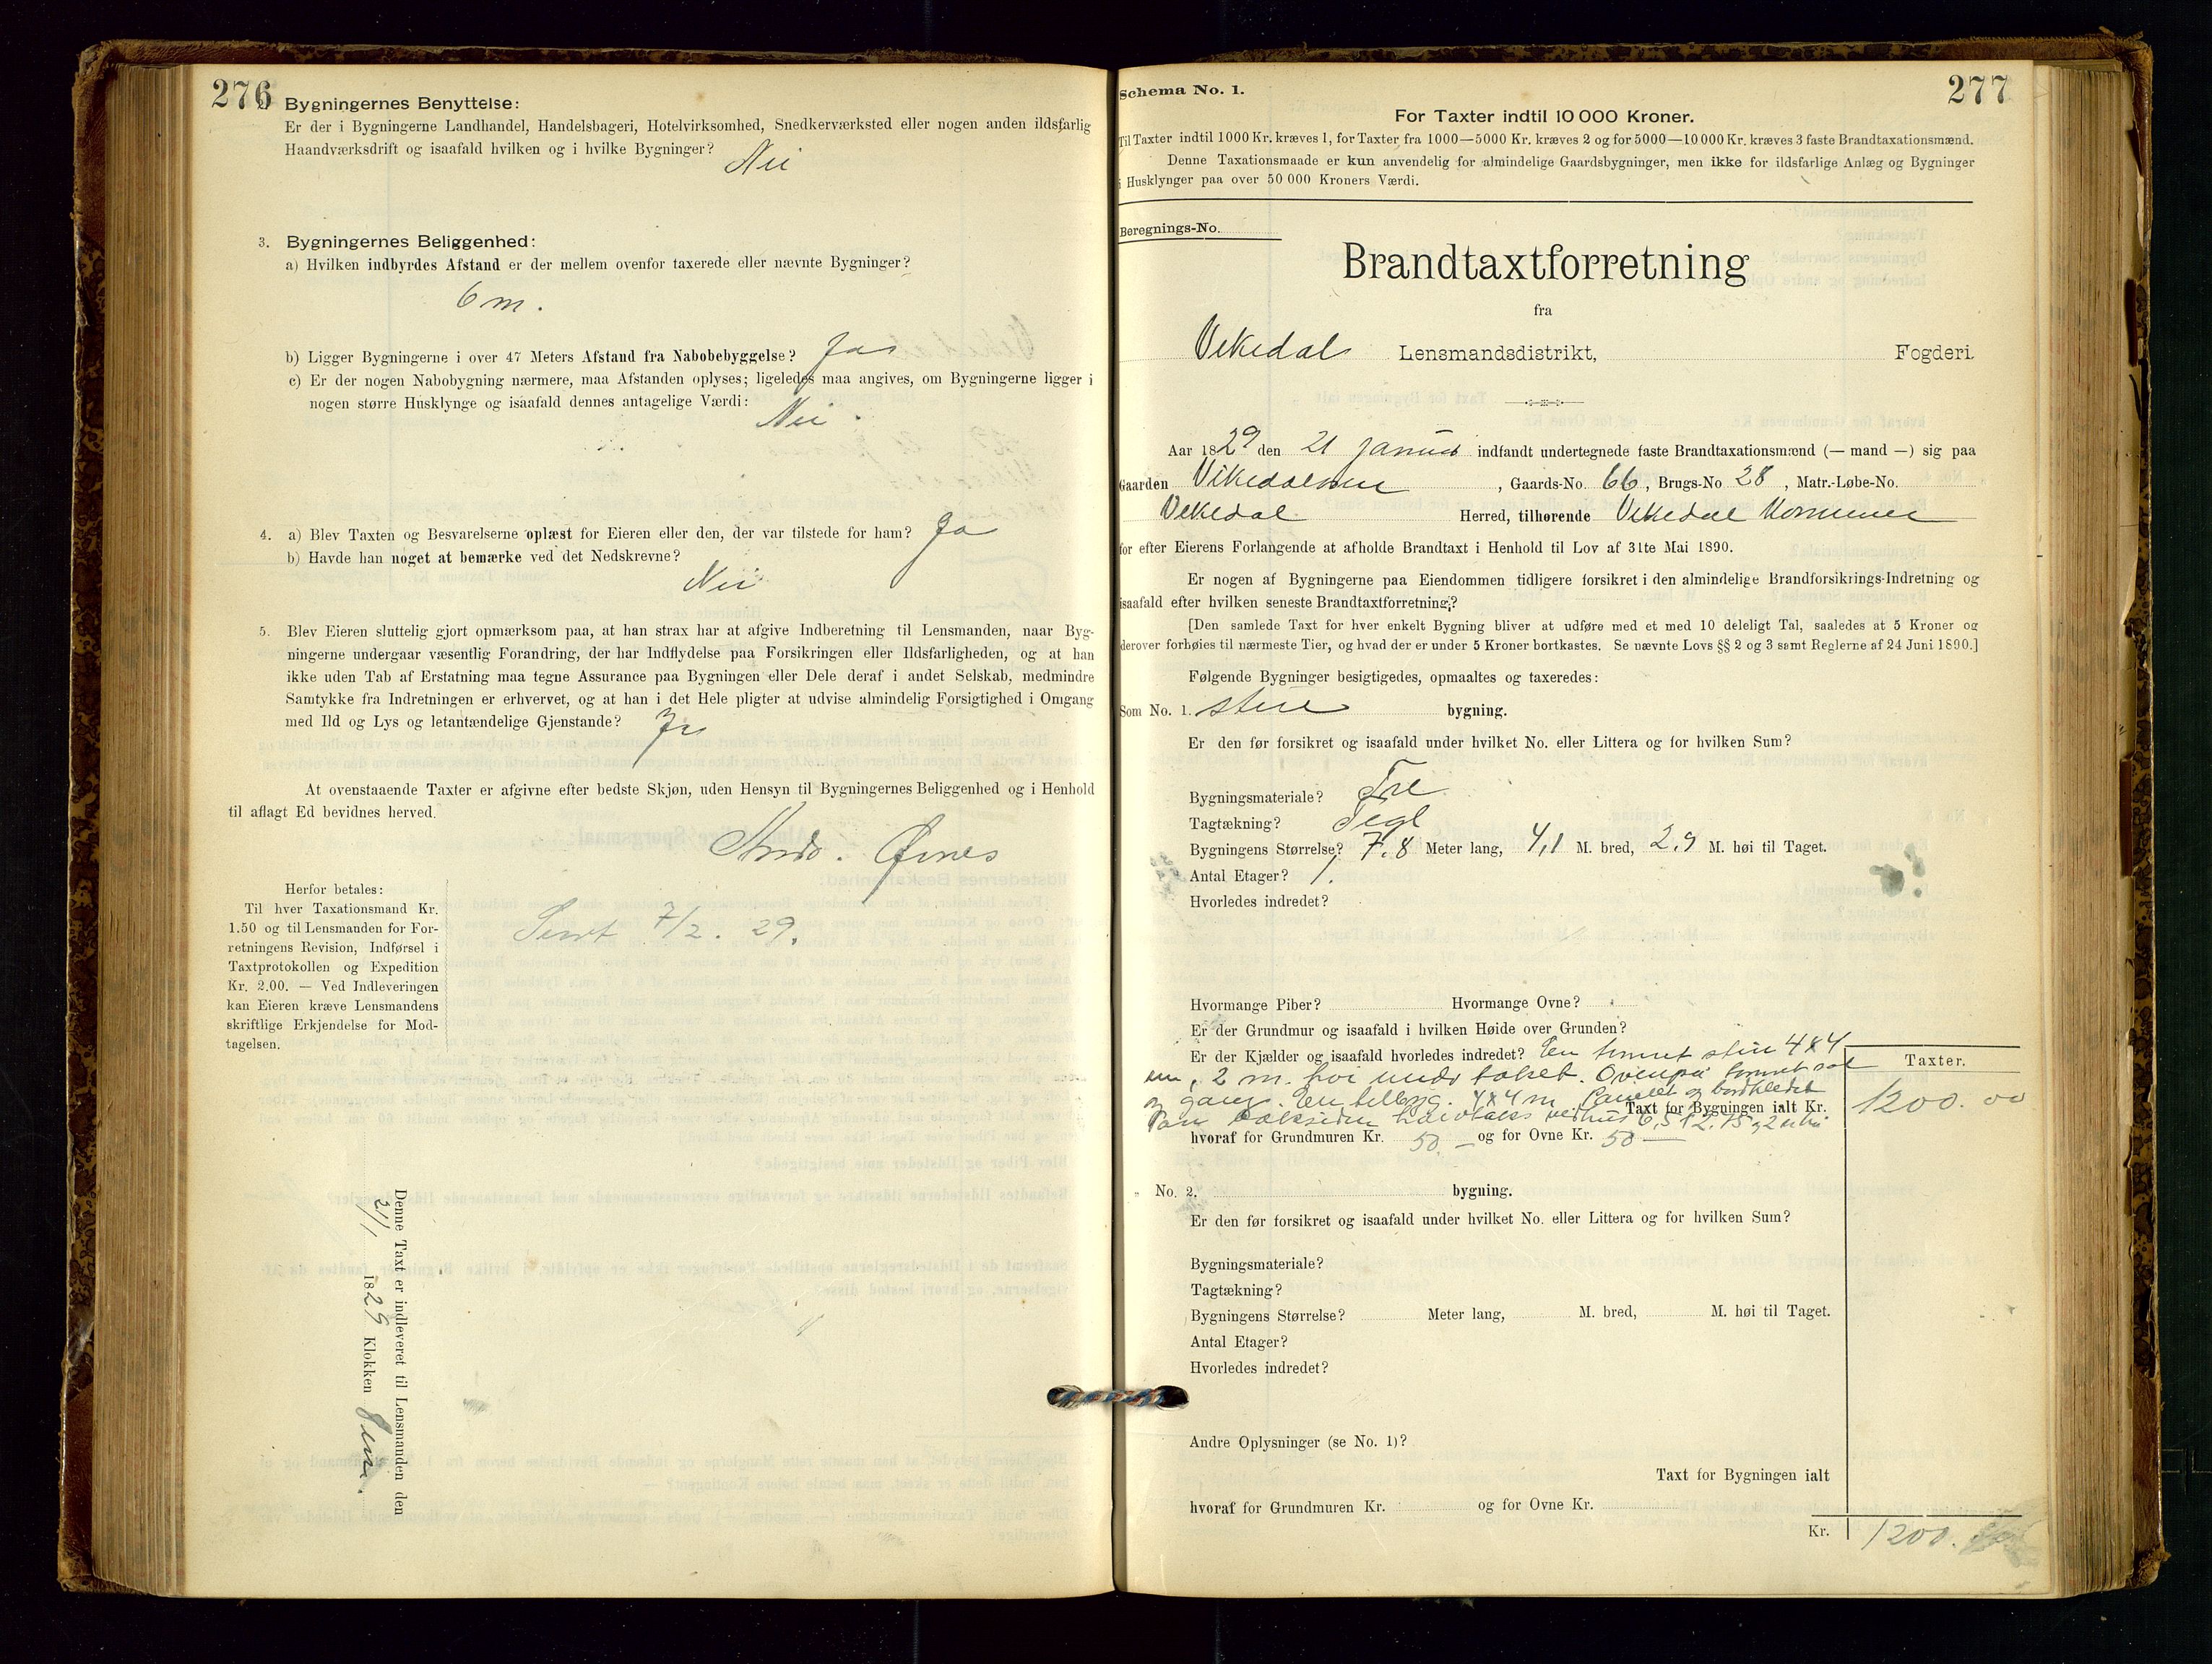 276
Bygningernes Benyttelse:
Er der i Bygningerne Landhandel, Handelsbageri, Hotelvirksomhed, Snedkerværksted eller nogen anden ildsfarlig
Haandværksdrift og isaafald hvilken og i hvilke Bygninger?
Nei
3. Bygningernes Beliggenhed:
a) Hvilken indbyrdes Afstand er der mellem ovenfor taxerede eller nævnte Bygninger?
6 m.
b) Ligger Bygningerne i over 47 Meters Afstand fra Nabobebyggelse? Ja
c) Er der nogen Nabobygning nærmere, maa Afstanden oplyses; ligeledes maa angives, om Bygningerne ligger i
nogen større Husklynge og isaafald dennes antagelige Værdi:
Nei.
4. a) Blev Taxten og Besvarelserne oplæst for Eieren eller den, der var tilstede for ham? Ja
b) Havde han noget at bemærke ved det Nedskrevne?
Nei
5. Blev Eieren sluttelig gjort opmærksom paa, at han strax har at afgive Indberetning til Lensmanden, naar Byg-
ningerne undergaar væsentlig Forandring, der har Indflydelse paa Forsikringen eller Ildsfarligheden, og at han
ikke uden Tab af Erstatning maa tegne Assurance paa Bygningen eller Dele deraf i andet Selskab, medmindre
Samtykke fra Indretningen er erhvervet, og at han i det Hele pligter at udvise almindelig Forsigtighed i Omgang
med Ild og Lys og letantændelige Gjenstande? Ja
At ovenstaaende Taxter er afgivne efter bedste Skjøn, uden Hensyn til Bygningernes Beliggenhed og i Henhold
til aflagt Ed bevidnes herved.
Øines
Herfor betales:
Til hver Taxationsmand Kr.
1.50 og til Lensmanden for For-
retningens Revision, Indførsel i
Taxtprotokollen og Expedition
Kr. 2.00. — Ved Indleveringen
kan Eieren kræve Lensmandens
skriftlige Erkjendelse for Mod-
tagelsen.
Sendt 7/2. 29.
Denne Taxt er indleveret til Lensmanden den
21/1 1829 Klokken
277
Schema No. 1.
For Taxter indtil 10 000 Kroner.
Til Taxter indtil 1000 Kr. kræves 1, for Taxter fra 1000—5000 Kr. kræves 2 og for 5000—10 000 Kr. kræves 3 faste Brandtaxationsmænd.
Denne Taxationsmaade er kun anvendelig for almindelige Gaardsbygninger, men ikke for ildsfarlige Anlæg og Bygninger
i Husklynger paa over 50 000 Kroners Værdi.
Beregnings-No.
Brandtaxtforretning
fra
Vikedal Lensmandsdistrikt, Fogderi.
Aar 1829 den 21 januar indfandt undertegnede faste Brandtaxationsmænd (— mand —) sig paa
Gaarden , Gaards-No. 66, Brugs-No 28, Matr.-Løbe-No.
Vikedal Herred, tilhørende Vikedal Kommune
for efter Eierens Forlangende at afholde Brandtaxt i Henhold til Lov af 31te Mai 1890.
Er nogen af Bygningerne paa Eiendommen tidligere forsikret i den almindelige Brandforsikrings-Indretning og
isaafald efter hvilken seneste Brandtaxtforretning?
[Den samlede Taxt for hver enkelt Bygning bliver at udføre med et med 10 deleligt Tal, saaledes at 5 Kroner og
derover forhøies til nærmeste Tier, og hvad der er under 5 Kroner bortkastes. Se nævnte Lovs §§ 2 og 3 samt Reglerne af 24 Juni 1890.]
Følgende Bygninger besigtigedes, opmaaltes og taxeredes:
Som No. 1. bygning.
Er den før forsikret og isaafald under hvilket No. eller Littera og for hvilken Sum?
Bygningsmateriale? Tre
Tagtækning? Tegl
Bygningens Størrelse? 7.8 Meter lang, 4,1 M. bred, 2,9 M. høi til Taget.
Antal Etager? 1.
Hvorledes indredet?
Hvormange Piber? Hvormange Ovne?
Er der Grundmur og isaafald i hvilken Høide over Grunden?
Er der Kjælder og isaafald hvorledes indredet? En 4x4
m, 2 m. høi under taket. Ovenpaa
og gang. En tilbyg. 4x4 m og bordkledet
Taxter.
Taxt for Bygningen ialt Kr. 1200.00
hvoraf for Grundmuren Kr. 50 — og for Ovne Kr. 50 —
" No. 2. bygning.
Er den før forsikret og isaafald under hvilket No. eller Littera og for hvilken Sum?
Bygningsmateriale?
Tagtækning?
Bygningens Størrelse? Meter lang, M. bred, M. høi til Taget.
Antal Etager?
Hvorledes indredet?
Andre Oplysninger (se No. 1)?
Taxt for Bygningen ialt
hvoraf for Grundmuren Kr. og for Ovne Kr.
Kr. 1200.